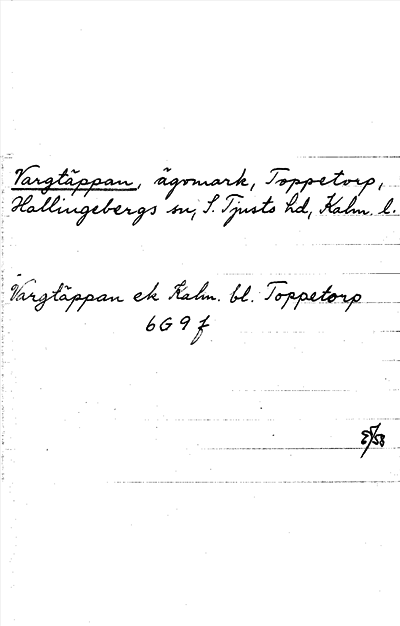 Vargtäppan, ägomark, Toppetorp,
Hallingebergs sn, S. Tjusts hd, Kalm. l.
Vargtäppan ek Kalm. bl. Toppetorp
6G 9 f